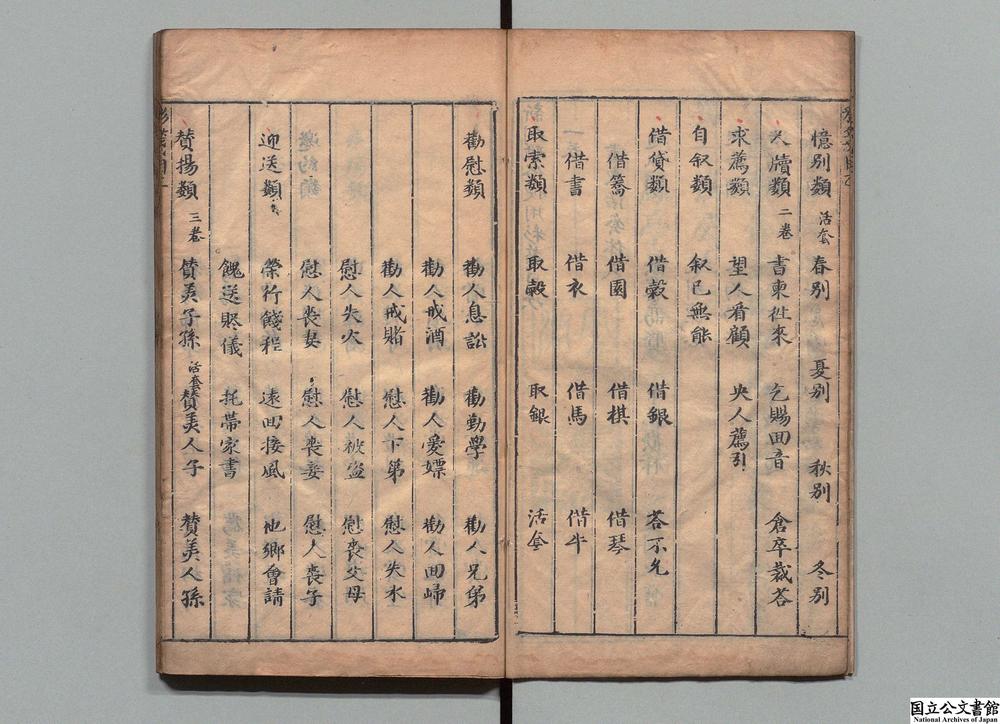 憶別類 活套 春別 夏別 秋別 冬別
尺牘類 二卷 書柬往來 乞賜回音 倉卒裁答
求薦類 望人看顧 央人薦引
自叙類 叙已無能
借貸類 借穀 借銀 答不允
借篱 借園 借棋 借琴
借書 借衣 借馬 借牛
取索類 取穀 取銀 活套
勸慰類 勸人息訟 勸勤學 勸人兄弟
勸人戒酒 勸人愛嫖 勸人回歸
勸人戒賭 慰人下第 慰人失水
慰人失火 慰人被盗 慰喪父母
慰人喪妻 慰人喪妾 慰人喪子
迎送類 榮行餞程 遠回接風 他鄉會請
餽送賍儀 托帶家書
賛揚類 三卷 賛美子孫 活套 賛美人子 賛美人孫
国立公文書館
National Archives of Japan